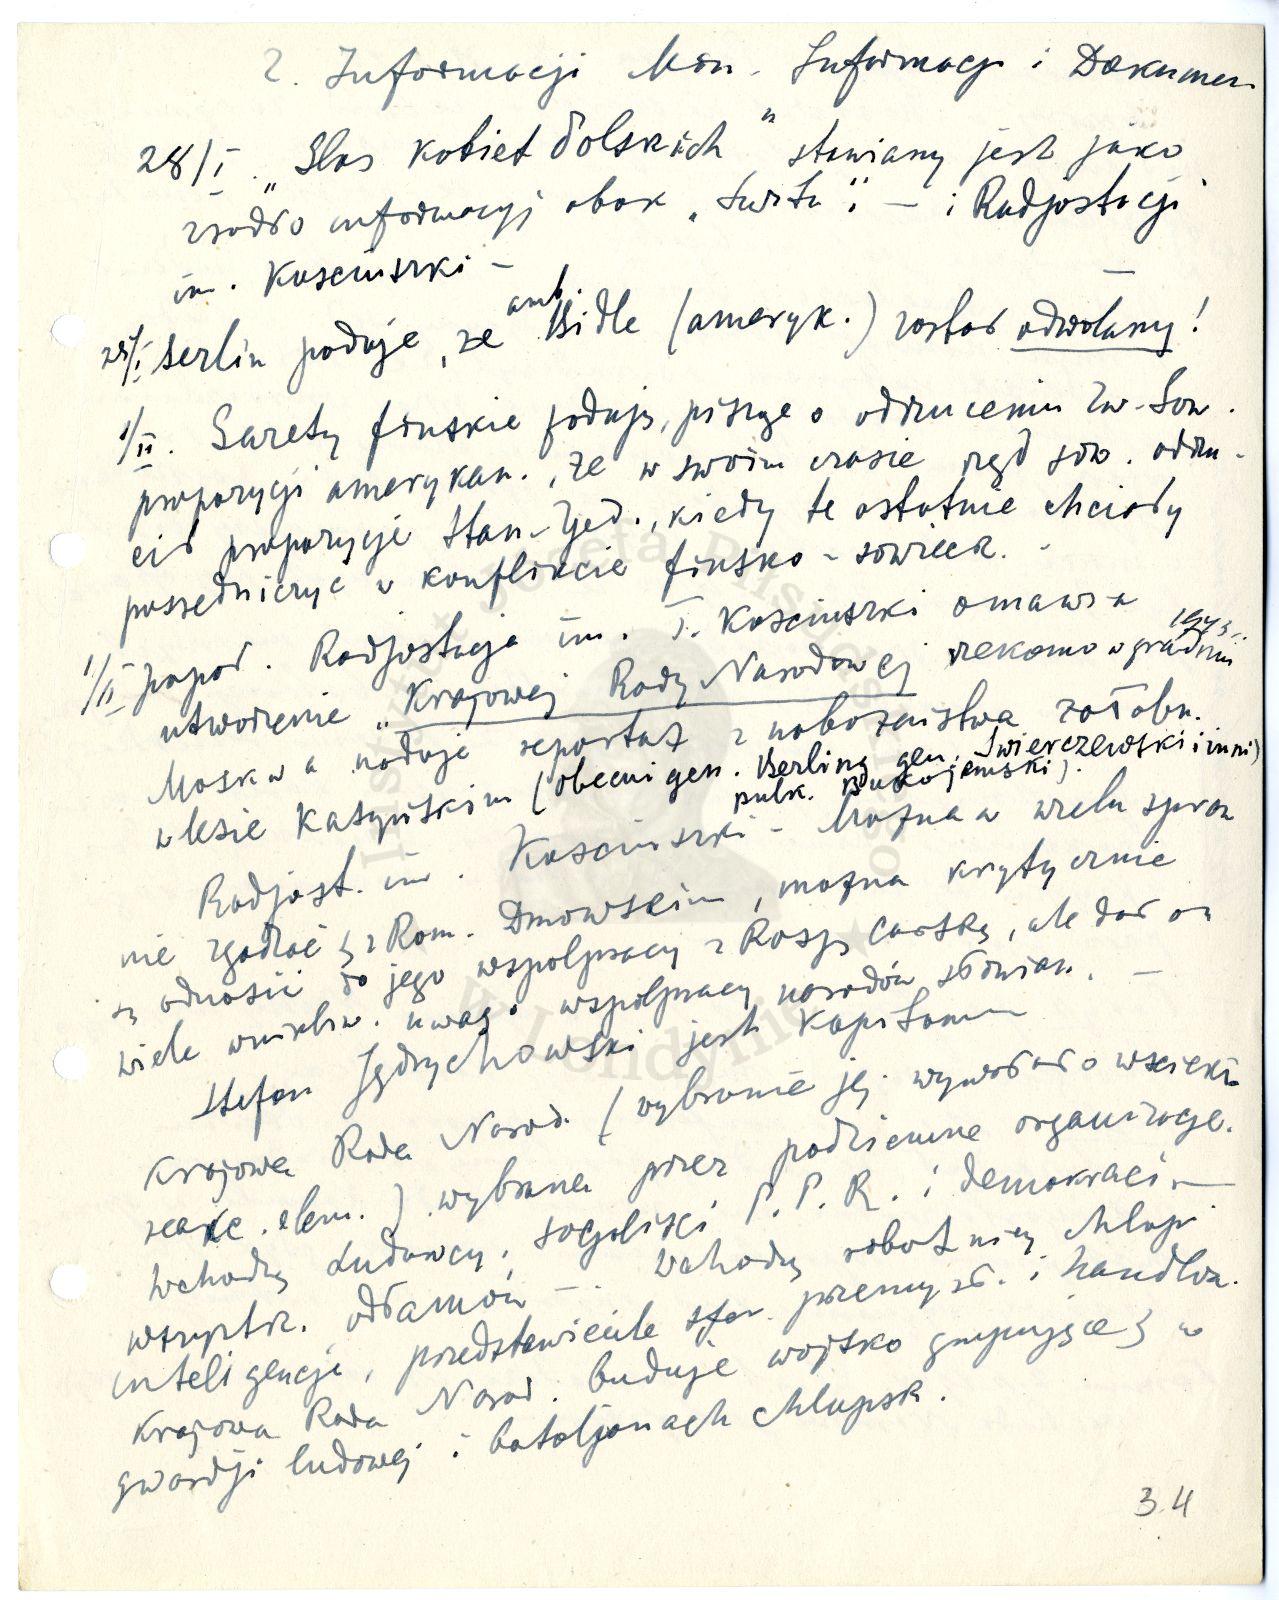 Z. Informacji Min. Informacji i Dokumen
28/I. „Głos Kobiet Polskich" stawiany jest jako
źródło informacyj obok „Świtu" i — i Radjostacji
im. Kosciuszki —
29/I Berlin podaje, że amb. Bidle (ameryk.) został odwołany!
1/II. Gazety fińskie podają, pisząc o odrzuceniu Zw. Sow.
propozycji amerykan., że w swoim czasie rząd sow. odrzu-
cił propozycję Stan. Zjed., kiedy te ostatnie chciały
pośredniczyć w konflikcie fińsko-sowieck. -
1/II popoł. Radjostacja im. T. Kosciuszki omawia
utworzenie „Krajowej Rady Narodowej rekomo w grudniu 1943.
Moskwa nadaje reportaż z nabożeństwa żałobn.
w lesie Katyńskim (obecni gen. Berling gen. Świerczewski i inni)
pułk. Bukojemski).
Radjost. im. Kosciuszki - Można w wielu spraw
nie zgadzać się z Rom. Dmowskim, można krytycznie
się odnosić do jego współpracy z Rosją Carską, ale dał on
wiele wnikliw. uwag o współpracy narodów słowian. —
Stefan Jędrychowski jest Kapitanem
Krajowa Rada Narod. (wybranie jej wywołało wściekł.
reakc. elem.) wybrana przez podziemne organizacje.
Wchodzą Ludowcy, socjaliści, P.P.R. i demokraci —
wszystk. odłamów —. Wchodzą robotnicy chłopi
inteligencja, przedstawiciele sfer przemysł. i handlow.
Krajowa Rada Narod. buduje wojsko grupujące się w
gwardji ludowej i bataljonach chłopsk.
34
Instytut Józefa Piłsudskiego
w Londynie